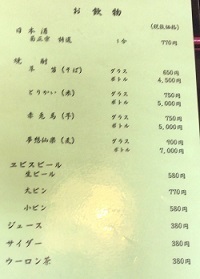 お飲物
(税抜価格)
日本酒
菊正宗 特選 1合 770円
焼酎
草笛(そば) グラス 650円
ボトル 4,500円
とりかい(米) グラス 750円
ボトル 5,000円
赤兎馬(芋) グラス 750円
ボトル 5,000円
夢想仙楽(麦) グラス 700円
ボトル 7,000円
ヱビスビール
生ビール 580円
大ビン 770円
小ビン 580円
ジュース 380円
サイダー 380円
ウーロン茶 380円